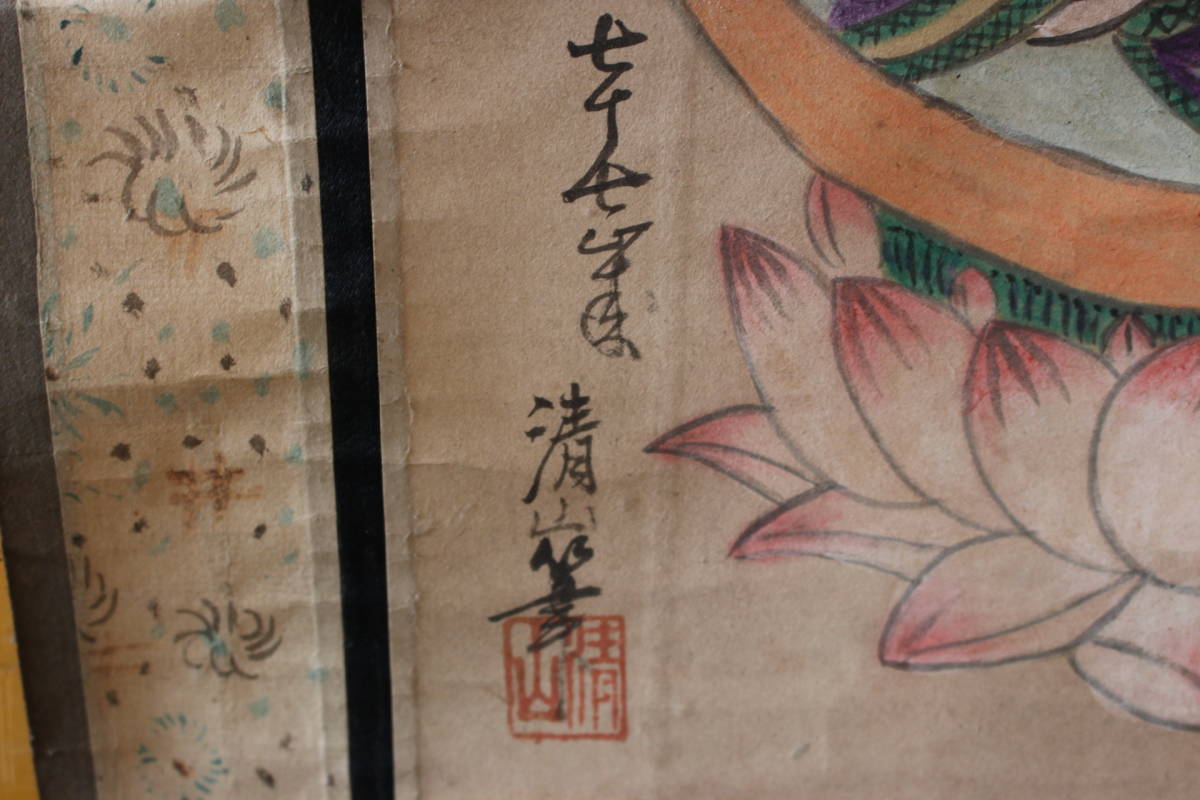 七十七歳
清山筆
清山